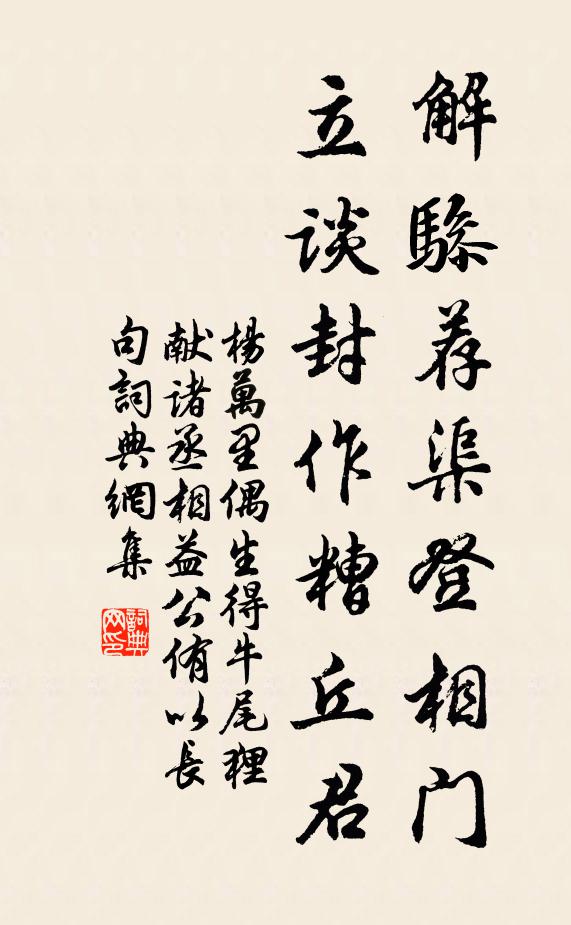 解骖荐渠登相门
立谈封作糟丘君
楊萬里偶生得牛尾狸
献诸丞相益公侑以長
句詞典網集
詞典
网印